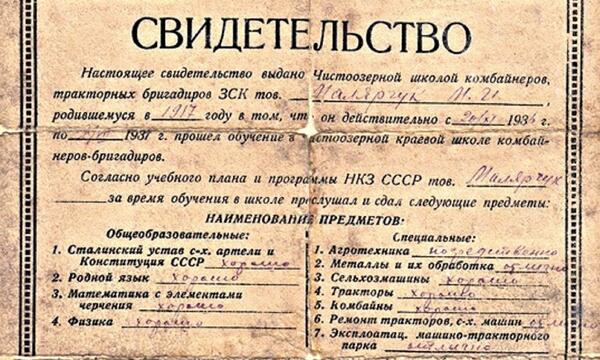 СВИДЕТЕЛЬСТВО
Настоящее свидетельство выдано Чистоозерной школой комбайнеров,
тракторных бригадиров ЗСК тов. Малярчук И. И.
родившемуся в 1917 году в том, что он действительно с 1936 г.
по 1937 г. прошел обучение в Чистоозерной краевой школе комбай-
неров-бригадиров.
Согласно учебного плана и программы НКЗ СССР тов. Малярчук
за время обучения в школе прослушал и сдал следующие предметы:
НАИМЕНОВАНИЕ ПРЕДМЕТОВ:
Общеобразовательные:
1. Сталинский устав с-х. артели и
Конституция СССР хорошо
2. Родной язык хорошо
3. Математика с элементами
черчения хорошо
4. Физика хорошо
Специальные:
1. Агротехника посредственно
2. Металлы и их обработка отлично
3. Сельхозмашины хорошо
4. Тракторы хорошо
5. Комбайны хорошо
6. Ремонт тракторов, с-х. машин отлично
7. Эксплоатац. машинно-тракторного
парка отлично